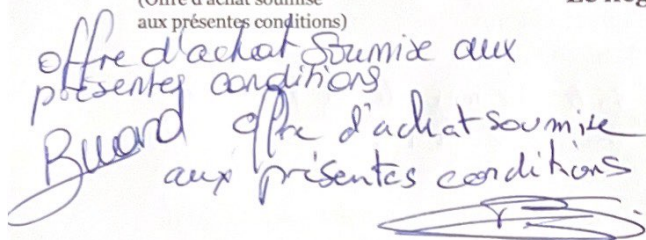 (Offre d'achat soumise
aux présentes conditions)
offre d'achat soumise aux
présentes conditions
offre d'achat soumise
aux présentes conditions